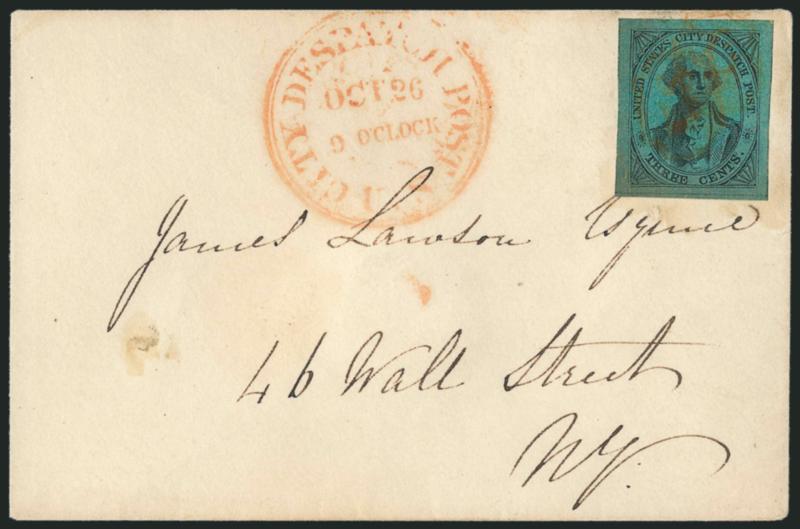 U.S CITY DESPATCH POST
OCT 26
9 O'CLOCK
UNITED STATES CITY DESPATCH POST.
THREE CENTS.
James Lawson Esquire
46 Wall Street
NY.